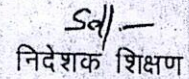 Sd/-
निदेशक शिक्षण